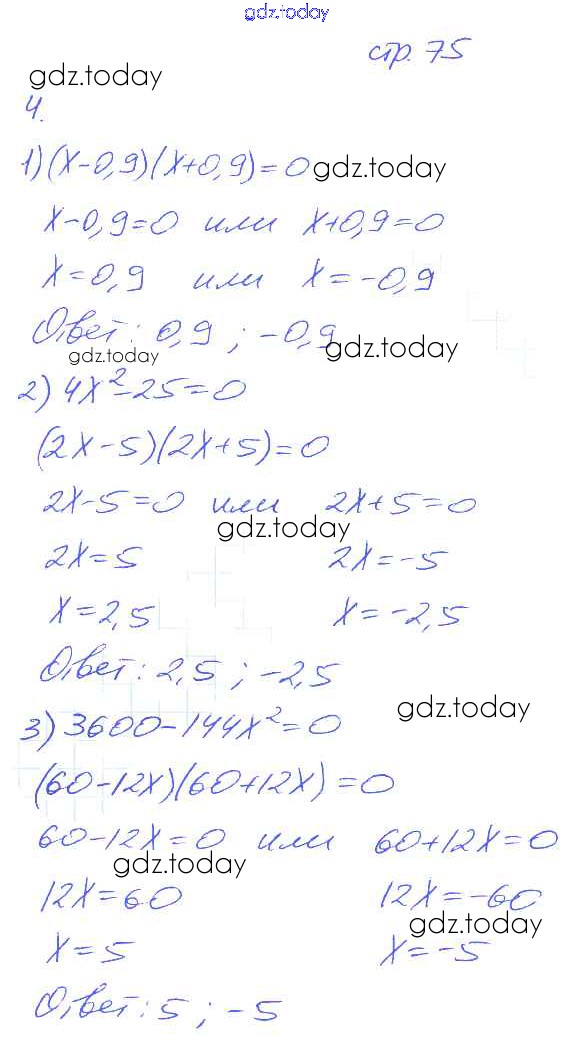 gdz.today
стр. 75
gdz.today
4.
1) (x-0,9)(x+0,9)=0 gdz.today
x-0,9=0 или x+0,9=0
x=0,9 или x=-0,9
Ответ: 0,9 ; -0,9
gdz.today gdz.today
2) 4x²-25=0
(2x-5)(2x+5)=0
2x-5=0 или 2x+5=0
gdz.today
2x=5 2x=-5
x=2,5 x=-2,5
Ответ: 2,5 ; -2,5
gdz.today
3) 3600-144x²=0
(60-12x)(60+12x)=0
60-12x=0 или 60+12x=0
gdz.today
12x=60 12x=-60
gdz.today
x=5 x=-5
Ответ: 5 ; -5